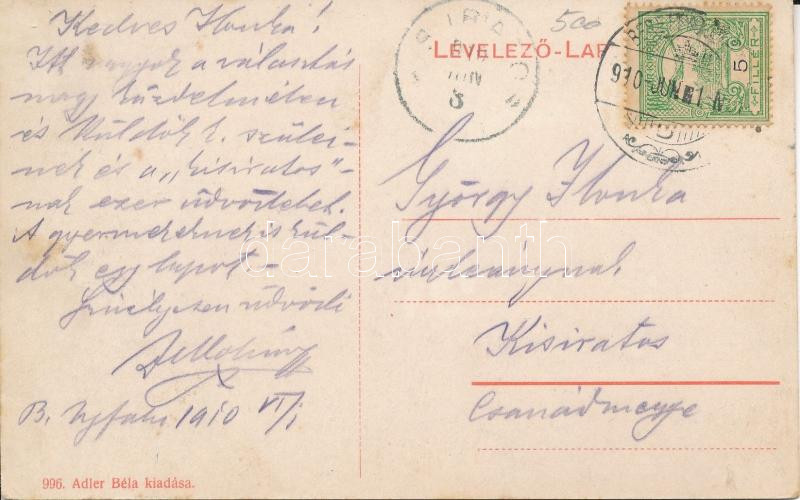 Kedves Ilonka!
Itt vagyok a választás
nagy küzdelmében
és küldök k. szülei-
nek és a „kisiratos"-
nak ezer üdvözletet.
A gyermekeknek is kül-
dök egy lapot –
Szívélyesen üdvözli
B. Ujfalu 1910 VI/1
996. Adler Béla kiadása.
500
LEVELEZŐ-LAP
5
FILLÉR
910 JUN
György Ilonka
úrleánynak
Kisiratos
Csanádmegye
darabanth